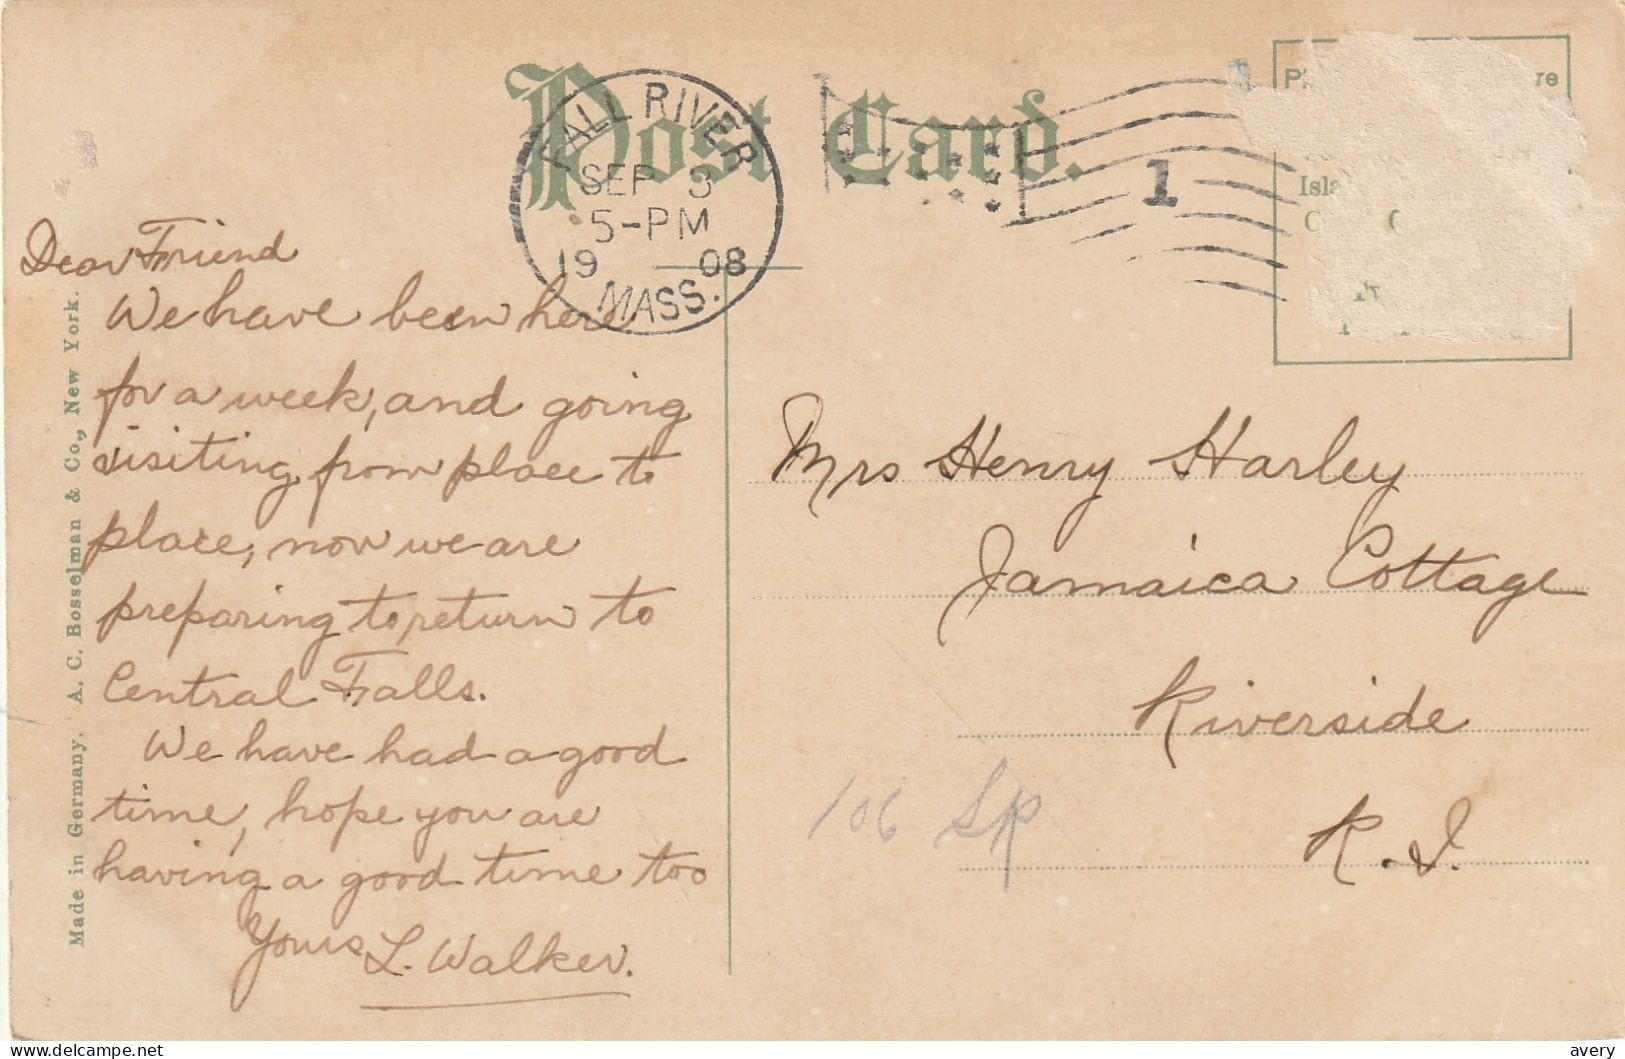 Post Card.
FALL RIVER
SEP 3
5-PM
1908
MASS.
1
Isla
Dear Friend
We have been here
for a week, and going
visiting from place to
place, now we are
preparing to return to
Central Falls.
We have had a good
time, hope you are
having a good time too
Yours L. Walker.
Mrs Henry Harley
Jamaica Cottage
Riverside
R. I.
106
Made in Germany. A. C. Bosselman & Co., New York.
the-post-card